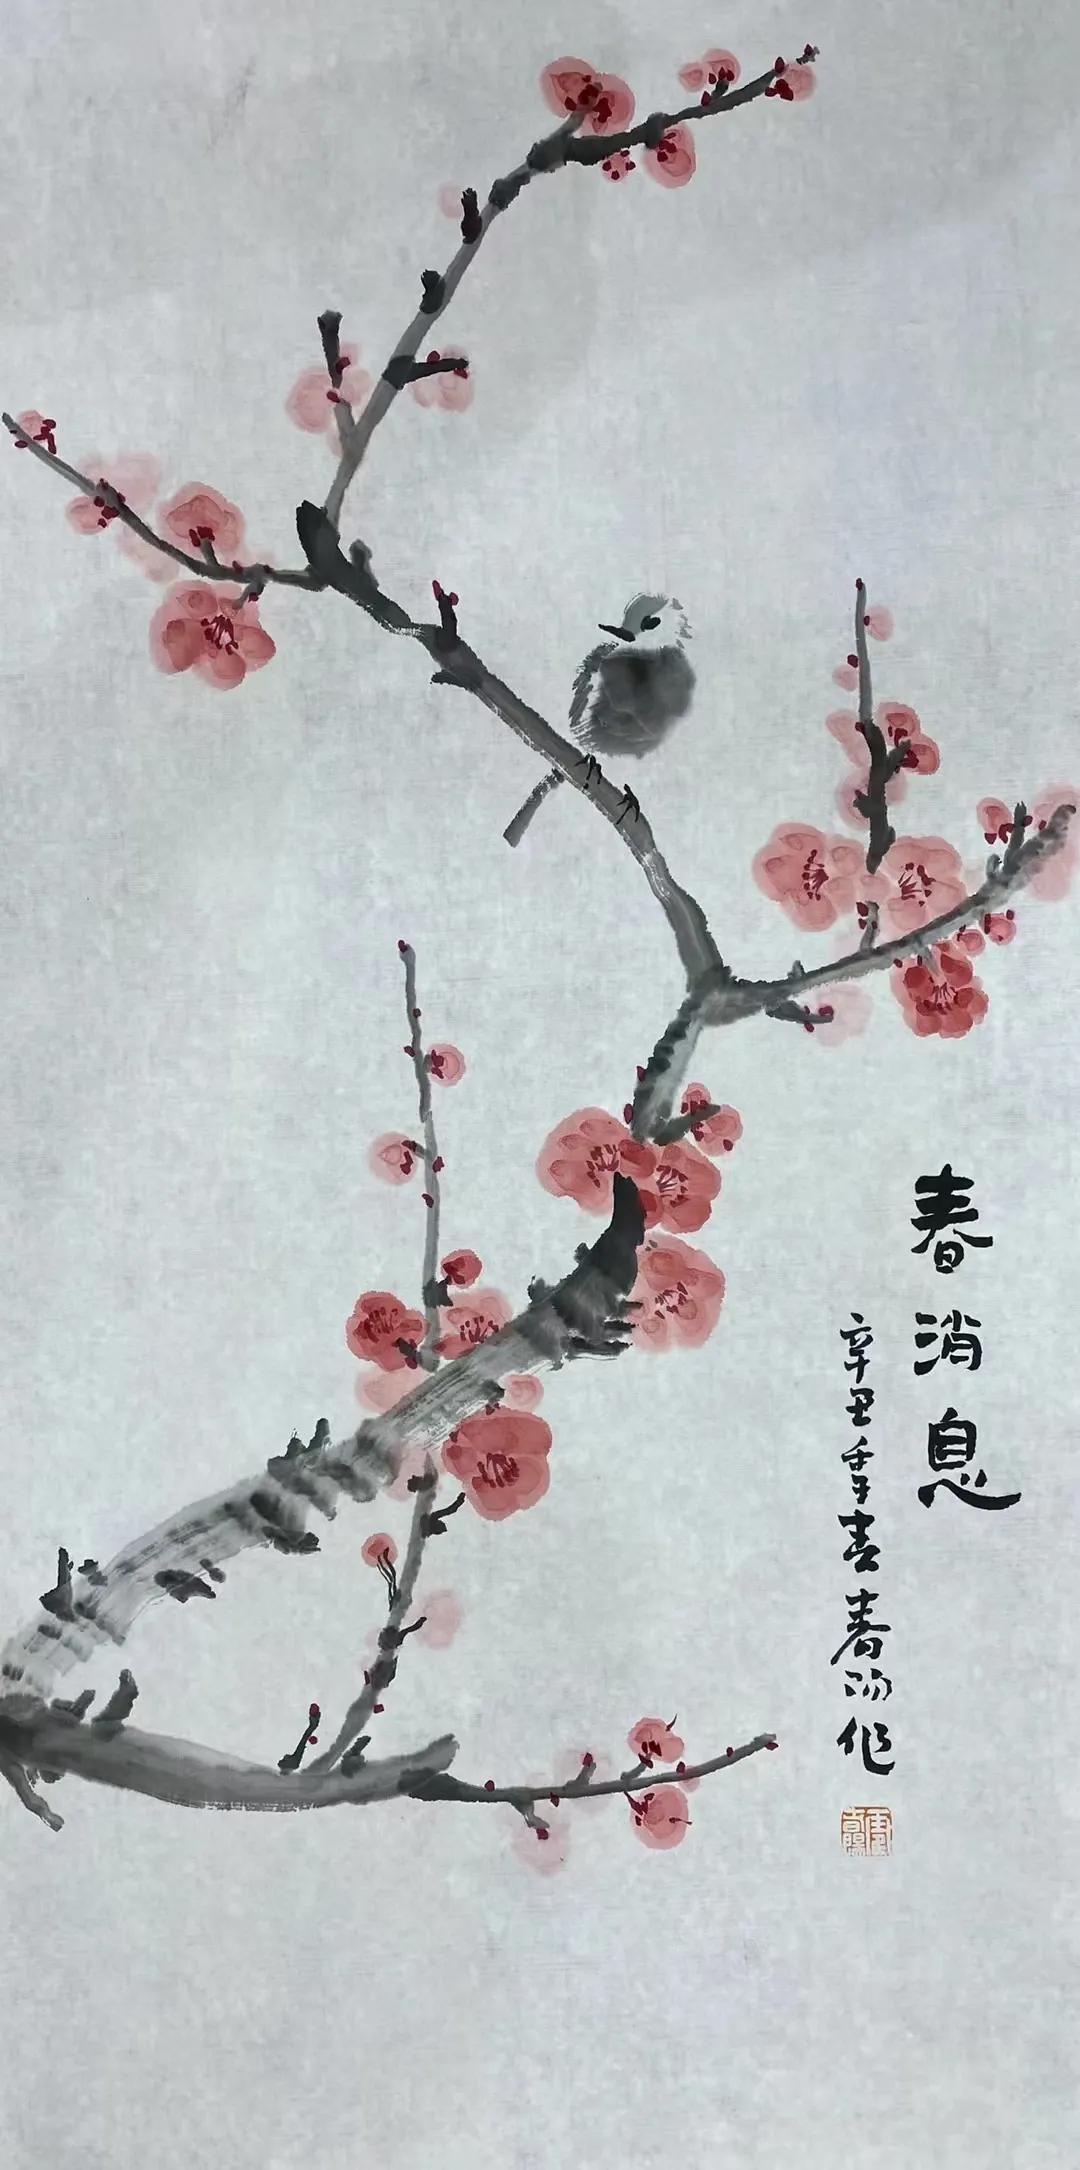 春消息
辛丑年春阳作